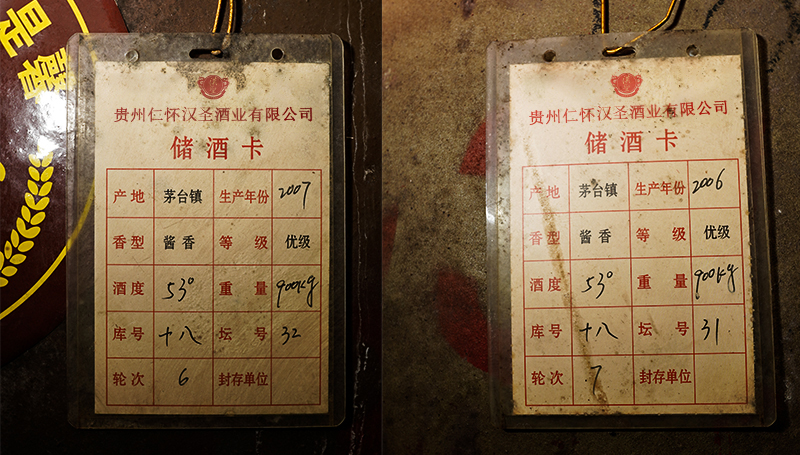 贵州仁怀汉圣酒业有限公司
储酒卡
产地 茅台镇 生产年份 2007
香型 酱香 等级 优级
酒度 53° 重量 900kg
库号 十八 坛号 32
轮次 6 封存单位
贵州仁怀汉圣酒业有限公司
储酒卡
产地 茅台镇 生产年份 2006
香型 酱香 等级 优级
酒度 53° 重量 900kg
库号 十八 坛号 31
轮次 7 封存单位